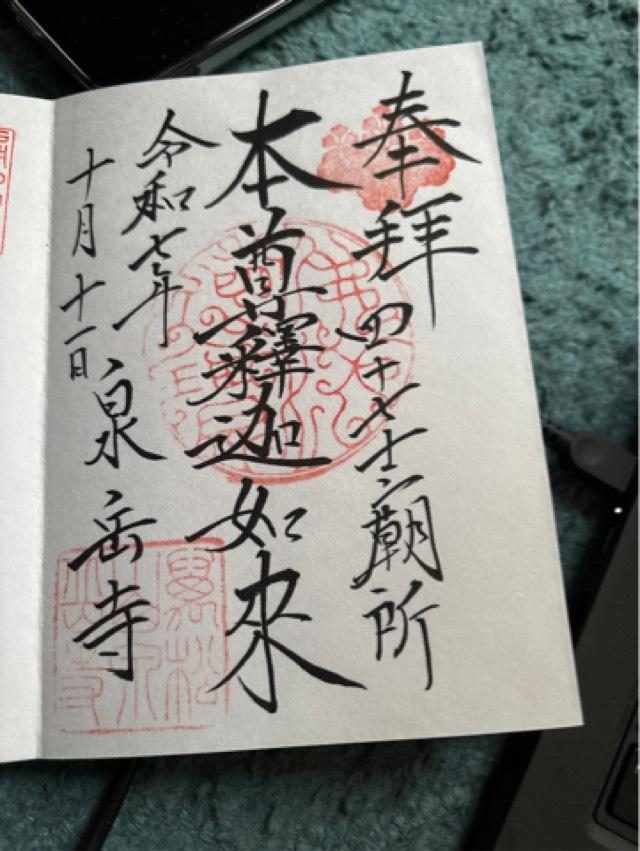 奉拝 四十七士廟所
本尊釋迦如来
令和七年
十月十一日
泉岳寺